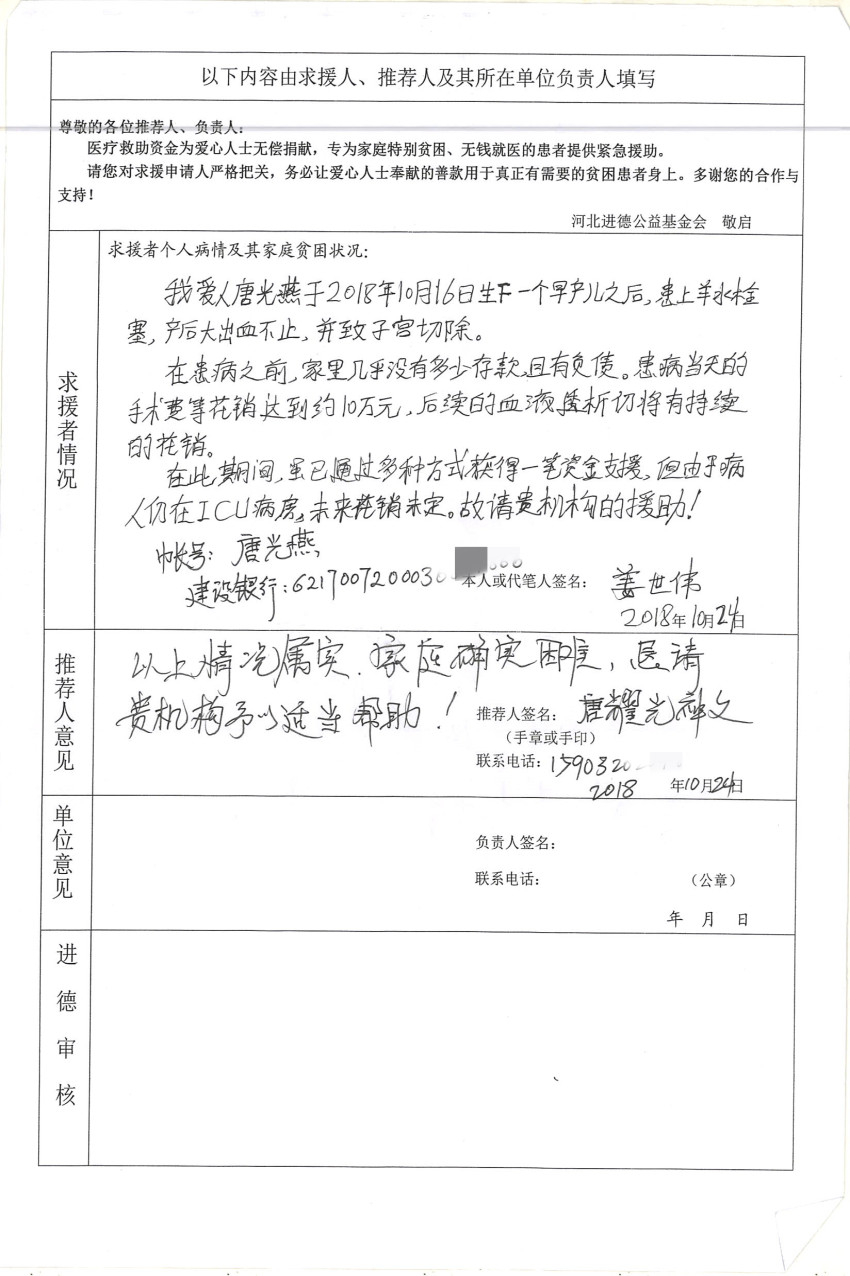 以下内容由求援人、推荐人及其所在单位负责人填写
尊敬的各位推荐人、负责人：
医疗救助资金为爱心人士无偿捐献，专为家庭特别贫困、无钱就医的患者提供紧急援助。
请您对求援申请人严格把关，务必让爱心人士奉献的善款用于真正有需要的贫困患者身上。多谢您的合作与
支持！
河北进德公益基金会 敬启
求援者情况
求援者个人病情及其家庭贫困状况：
我爱人唐光燕于2018年10月16日生下一个早产儿之后，患上羊水栓
塞，产后大出血不止，并致子宫切除。
在患病之前，家里几乎没有多少存款，且有负债。患病当天的
手术费等花销达到约10万元，后续的血液透析仍将有持续
的花销。
在此期间，虽已通过多种方式获得一笔资金支援，但由于病
人仍在ICU病房，未来花销未定。故请贵机构的援助！
帐号：唐光燕
建设银行：621700720003
本人或代笔人签名：姜世伟
2018年10月24日
推荐人意见
以上情况属实，家庭确实困难，恳请
贵机构予以适当帮助！
推荐人签名：唐耀光神父
（手章或手印）
联系电话：1590320
2018年10月24日
单位意见
负责人签名：
联系电话： （公章）
年 月 日
进德审核